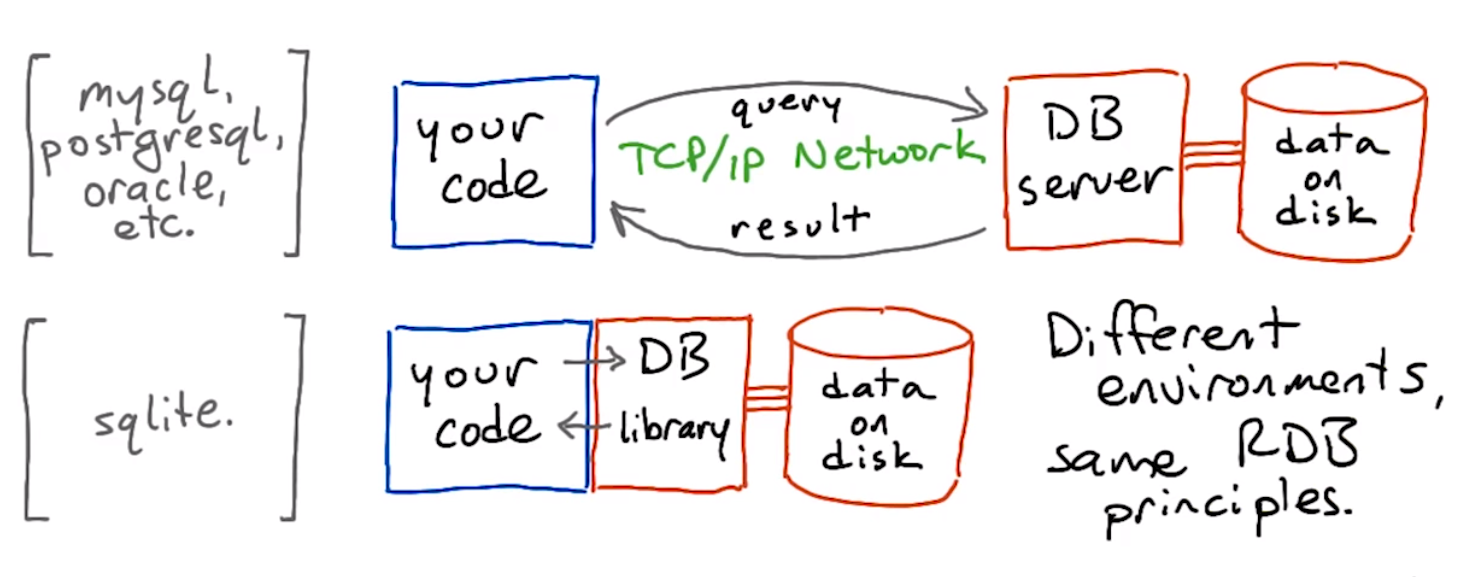 mysql,
postgresql,
oracle,
etc.
your
code
query
TCP/IP Network
result
DB
server
data
on
disk
sqlite.
your
code
DB
library
data
on
disk
Different
environments,
same RDB
principles.